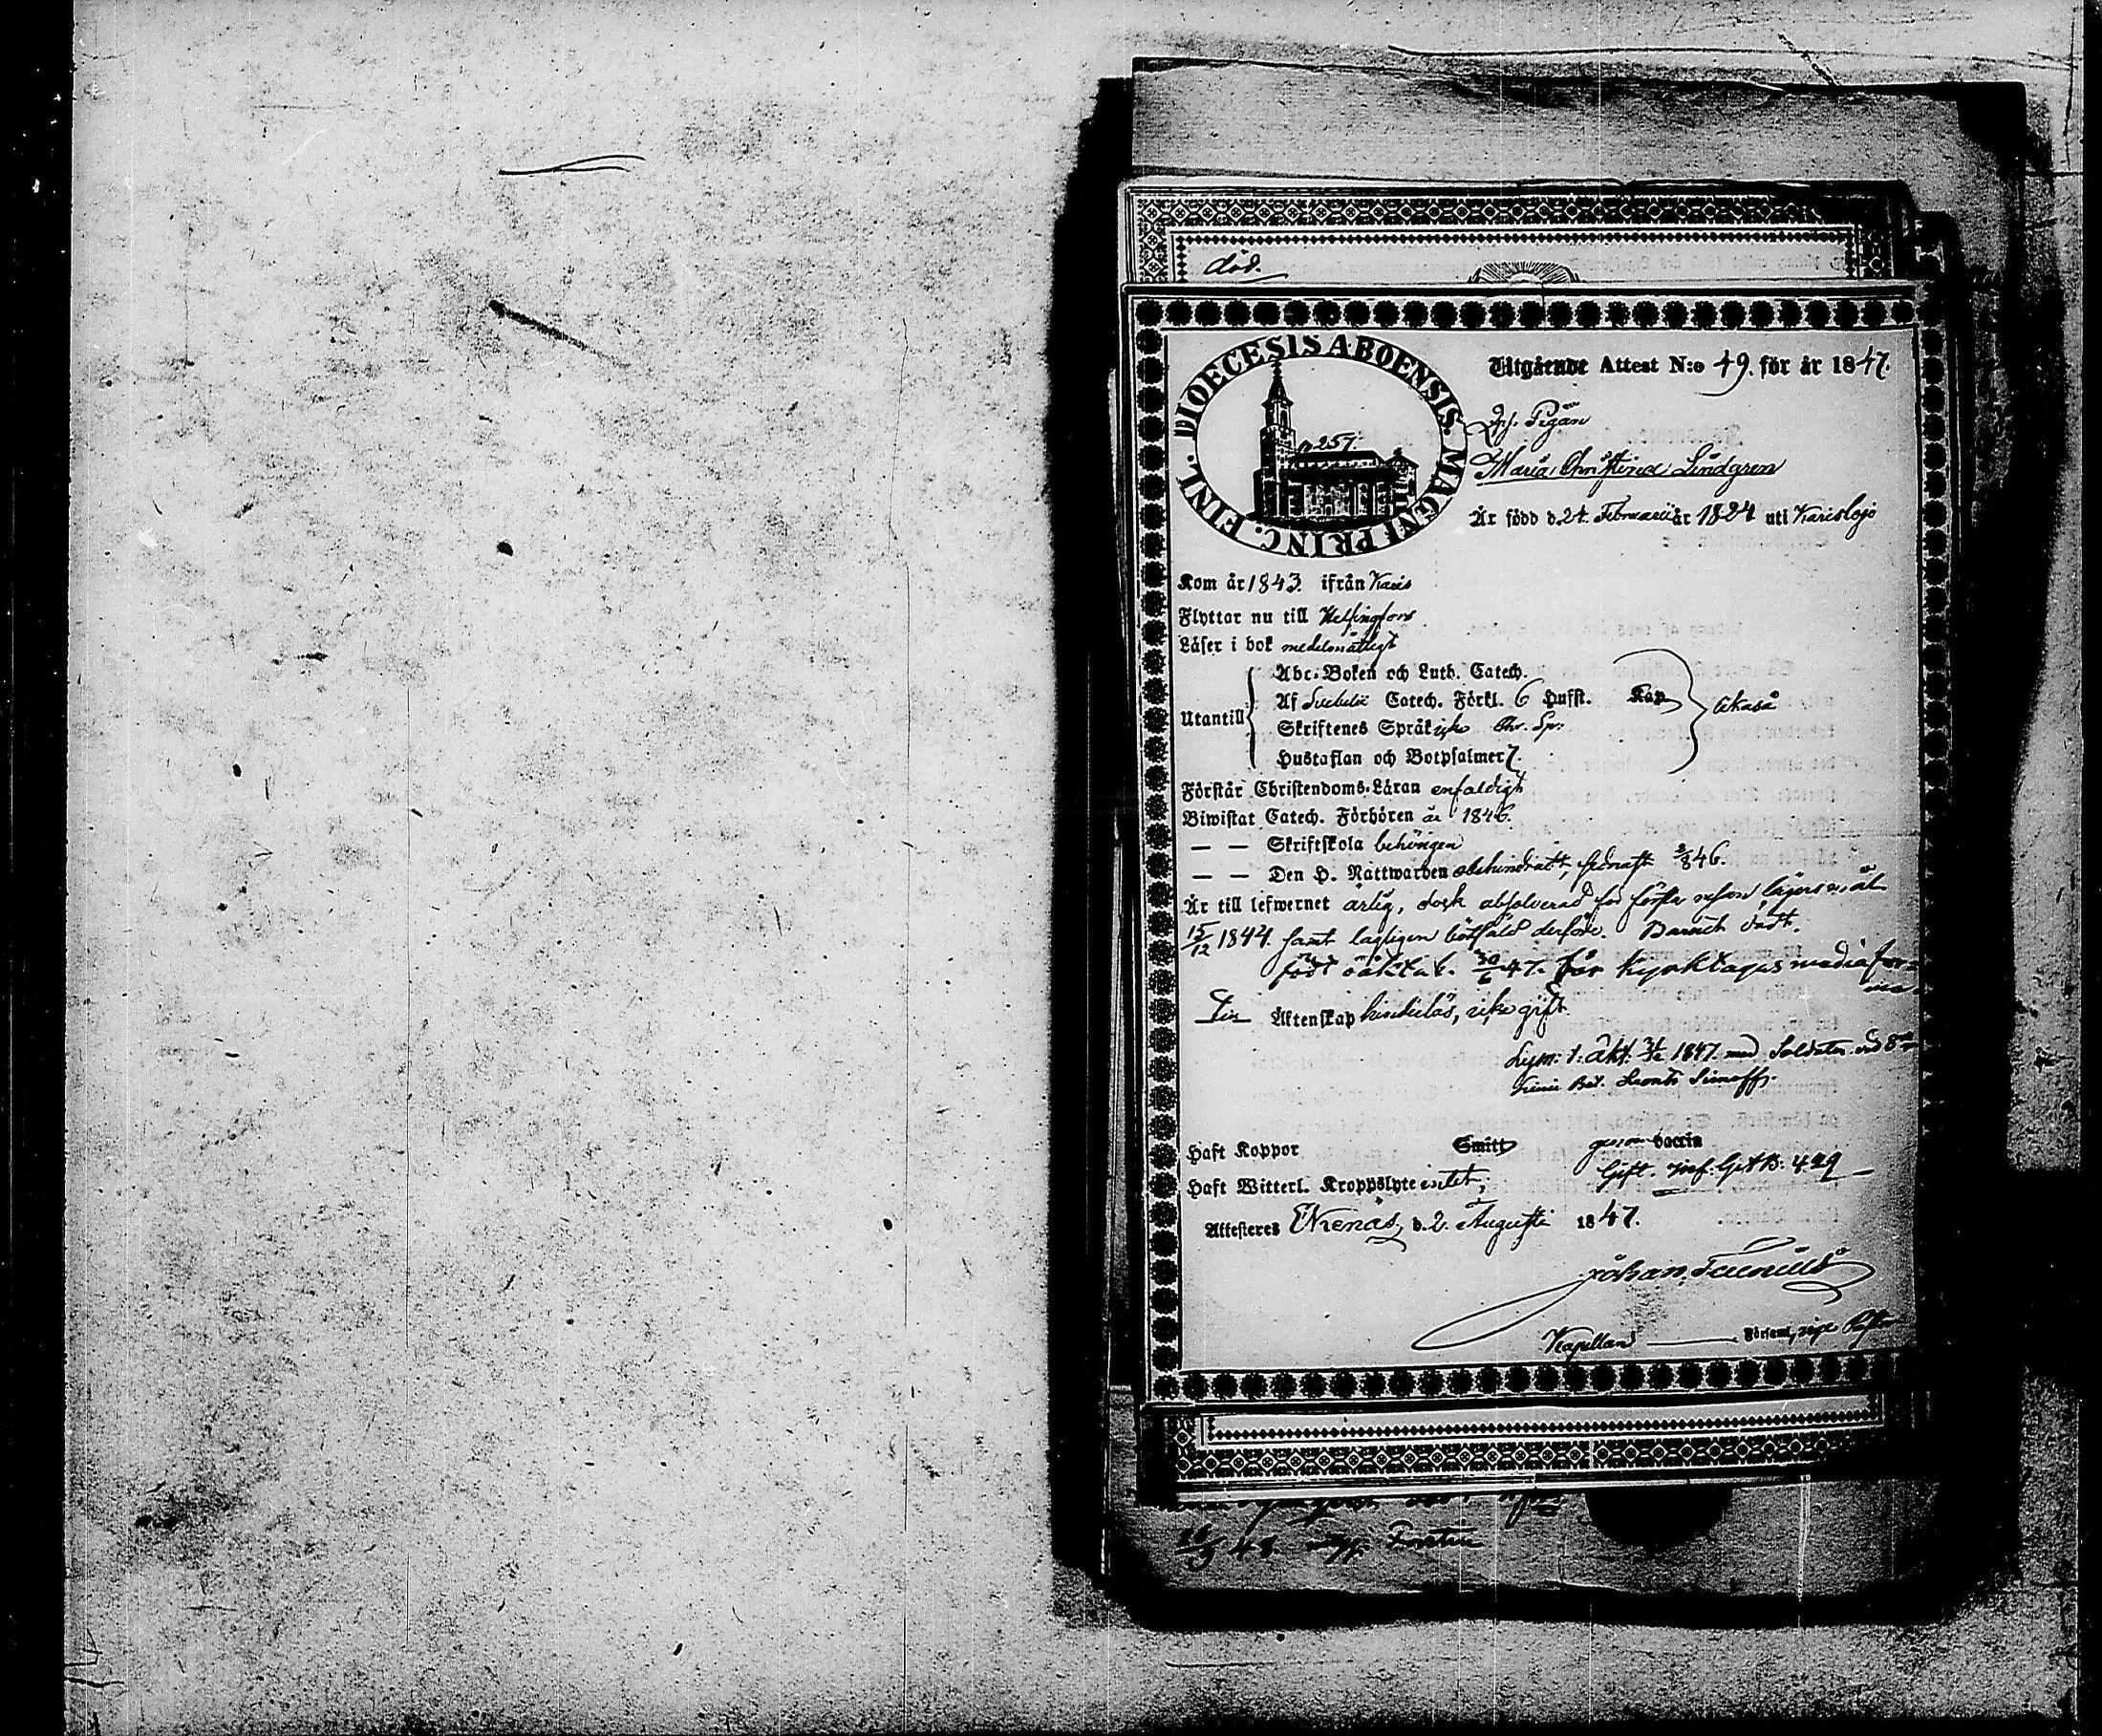 död.
DIOECESIS ABOENSIS. MAGNI PRINC. FINL.
n 257.
Utgående Attest N:o 49. för år 1847.
Pigan
Maria Christina Lindgren
Är född d. 24 Februarii år 1824 uti Karislojo
Kom år 1843. ifrån Karis
Flyttar nu till Helsingfors
Läser i bok medelmåttigt
Utantill
Abc-Boken och Luth. Catech.
Af Svebelii Catech. Förkl. 6 Hufst. Kap
Skriftenes Språk Chr. Sp.
Hustaflan och Botpsalmer 7.
Förstår Christendoms-Läran enfaldigt
Biwistat Catech. Förhören år 1846.
— — Skriftskola behörigen
— — Den H. Nattwarden obehindradt, senast 2/8 46.
Är till lefwernet ärlig, dock absolverad för första resan lägersmål
15/12 1844. samt lagligen bötfäld derföre. Barnet dödt.
födt oäkta b. 30/6 47. får kyrktagas
Till Äktenskap hinderlös, icke gift.
Lysn: t. äkt. 1847. med Soldaten vid 8
Finie Bat. Leonti Simeoff.
Haft Koppor Smitt genom vaccin
Gift.
Haft Witterl. Kroppslyte intet;
Attesteres Ekenäs, d. 2 Augusti 1847.
Johan
Kapellan ——— Församl.
48. Forstén